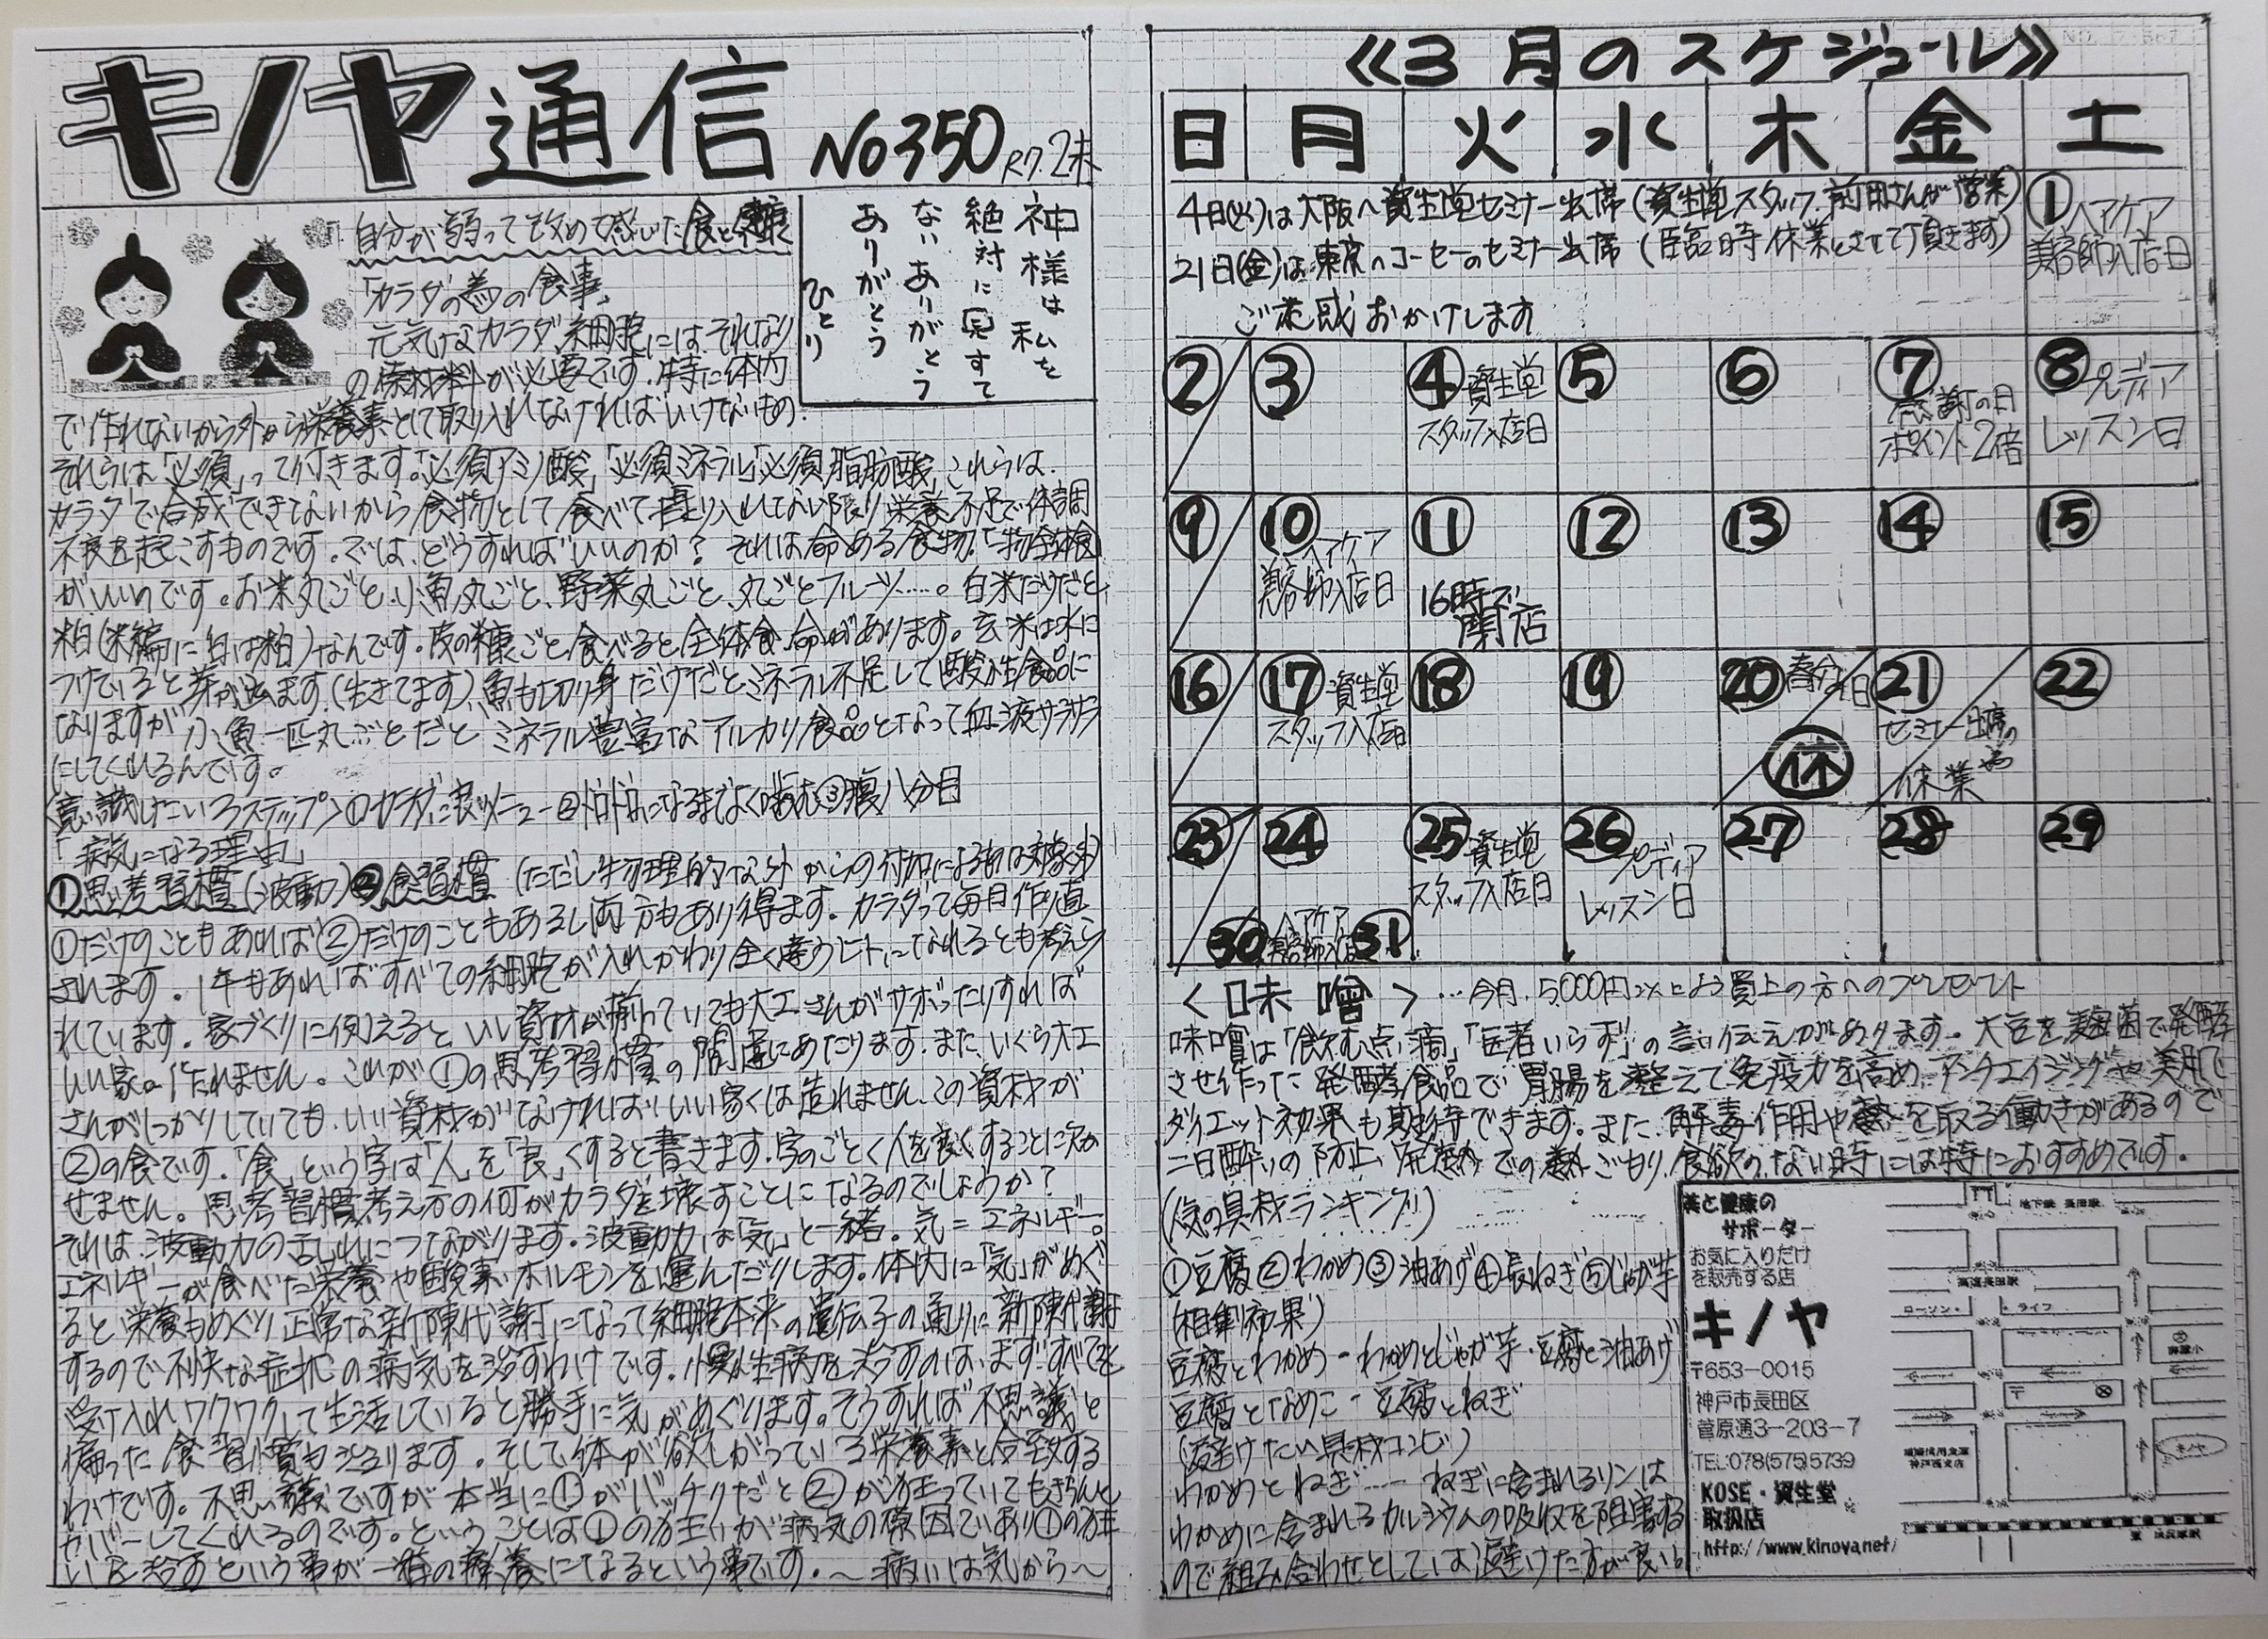 キノヤ通信 No350 R7.2末
「自分が弱って改めて感じた食と健康」
「カラダの為の食事」
元気なカラダ、細胞には、それなり
の原材料が必要です。特に体内
で作れないから外から栄養素として取り入れなければいけないもの。
それらは「必須」って付きます。「必須アミノ酸」「必須ミネラル」「必須脂肪酸」これらは、
カラダで合成できないから食物として食べて取り入れしない限り栄養不足で体調
不良を起こすものです。では、どうすればいいのか？それは命ある食物。「一物全体食」
がいいのです。お米丸ごと、小魚丸ごと、野菜丸ごと、丸ごとフルーツ……。白米だけだと、
粕(米編に白は粕)なんです。皮の糠ごと食べると全体食、命があります。玄米は水に
つけていると芽が出ます。(生きてます)、魚も切り身だけだとミネラル不足して酸性食品に
なりますが小魚一匹丸ごとだとミネラル豊富なアルカリ食品となって血液サラサラ
にしてくれるんです。
意識したい3ステップ①カラダに良いメニュー②ドロドロになるまでよく噛む③腹八分目
「病気になる理由」
①思考習慣(波動)②食習慣(ただし物理的な外からの付加によるものは対象外)
①だけのこともあれば②だけのこともあるし両方もあり得ます。カラダって毎月作り直
されます。1年もあればすべての細胞が入れかわり全く違うヒトになれるとも考えら
れています。家づくりに例えると、いい資材が揃っていても大工さんがサボったりすれば
いい家は作れません。これが①の思考習慣の間違にあたります。また、いくら大工
さんがしっかりしていても、いい資材がなければいい家は造れません。この資材が
②の食です。「食」という字は「人」を「良」くすると書きます。字のごとく人を良くすることに欠か
せません。思考習慣、考え方の何がカラダを壊すことになるのでしょうか？
それは、波動力の乱れにつながります。波動力は「気」と一緒。気＝エネルギー。
エネルギーが食べた栄養や酸素、ホルモンを運んだりします。体内に「気」がめぐ
ると栄養もめぐり正常な新陳代謝になって細胞本来の遺伝子の通りに新陳代謝
するので不快な症状の病気を治すわけです。慢性病を治すのは、まず、すべてを
受け入れワクワクして生活していると勝手に気がめぐります。そうすれば不思議と
偏った食習慣も治ります。そして体が欲しがっている栄養素と合致する
わけです。不思議ですが本当に①がバッチリだと②が狂っていてもきちんと
カバーしてくれるのです。ということは①の狂いが病気の原因であり①の狂
いを治すという事が一番の療養になるという事です。～病いは気から～
神様は私を
絶対に見すて
ないありがとう
ありがとう
ひとり
≪3月のスケジュール≫
日 月 火 水 木 金 土
4日(火)は大阪へ資生堂セミナー出席(資生堂スタッフ前田さんが営業)
21日(金)は東京へコーセーのセミナー出席(臨時休業とさせて頂きます)
ご迷惑おかけします
① ヘアケア
美容師入店日
② ③ ④ 資生堂 ⑤ ⑥ ⑦ ⑧ プレディア
スタッフ入店日 感謝の日 レッスン日
ポイント2倍
⑨ ⑩ ヘアケア ⑪ ⑫ ⑬ ⑭ ⑮
美容師入店日 16時で
閉店
⑯ ⑰ 資生堂 ⑱ ⑲ ⑳ 春分の日 ㉑ ㉒
スタッフ入店日 セミナー出席の
休 休業
㉓ ㉔ ㉕ 資生堂 ㉖ プレディア ㉗ ㉘ ㉙
スタッフ入店日 レッスン日
㉚ ヘアケア
美容師入店 ㉛
＜味噌＞…今月、5,000円以上お買上の方へのプレゼント
味噌は「飲む点滴」「医者いらず」の言い伝えがあります。大豆を麹菌で発酵
させ作った発酵食品で胃腸を整えて免疫力を高め、アンチエイジングや美肌で
ダイエット効果も期待できます。また、解毒作用や熱を取る働きがあるので
二日酔いの防止、発熱での熱ごもり、食欲のない時には特におすすめです。
(人気の具材ランキング)
①豆腐②わかめ③油あげ④長ねぎ⑤じゃが芋
(相乗効果)
豆腐とわかめ・わかめとじゃが芋・豆腐と油あげ
豆腐となめこ・豆腐とねぎ
(避けたい具材コンビ)
わかめとねぎ……ねぎに含まれるリンは
わかめに含まれるカルシウムの吸収を阻害する
ので組み合わせとしては避けた方が良い。
美と健康の
サポーター
お気に入りだけ
を販売する店
キノヤ
〒653-0015
神戸市長田区
菅原通3-203-7
TEL:078(575)5739
KOSE・資生堂
取扱店
http://www.kinoya.net/
地下鉄 長田駅
高速長田駅
ローソン ライフ
キノヤ